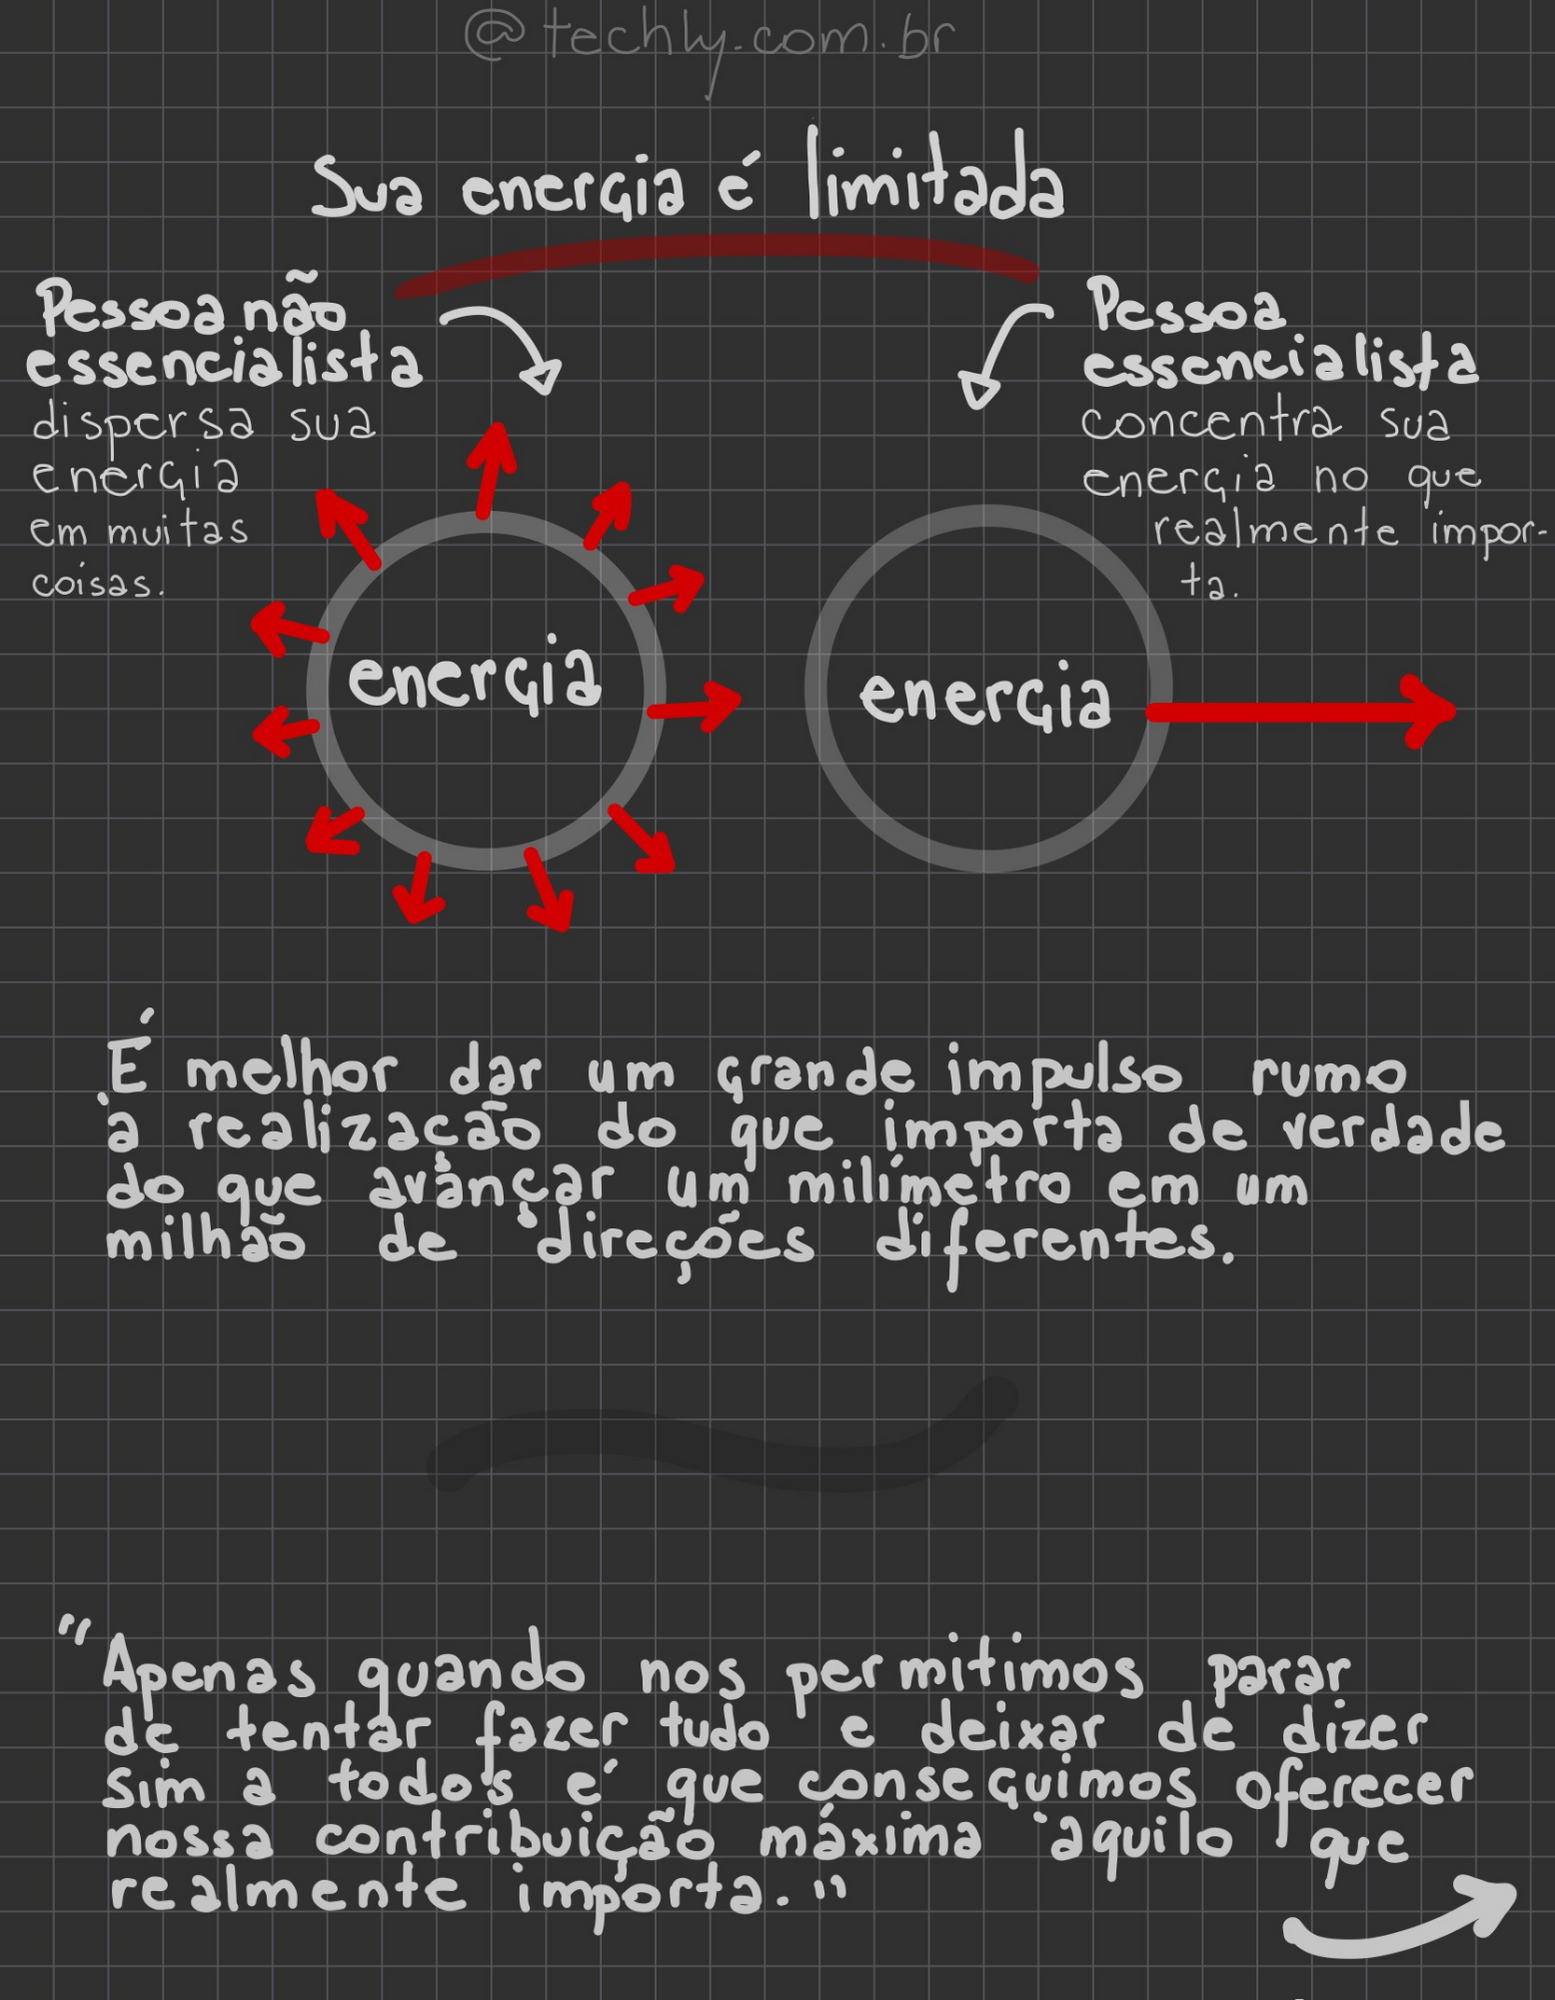 @techly.com.br
Sua energia é limitada
Pessoa não
essencialista
dispersa sua
energia
em muitas
coisas.
Pessoa
essencialista
concentra sua
energia no que
realmente impor-
ta.
energia
energia
É melhor dar um grande impulso rumo
à realização do que importa de verdade
do que avançar um milímetro em um
milhão de direções diferentes.
"Apenas quando nos permitimos parar
de tentar fazer tudo e deixar de dizer
sim a todos é que conseguimos oferecer
nossa contribuição máxima àquilo que
realmente importa."